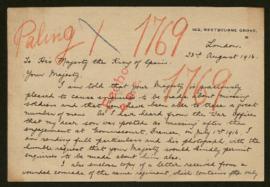 Paling X 1769
102, WESTBOURNE GROVE,
London.
23rd August 1916.
To His Majesty the King of Spain.
Your Majesty,
I am told that Your Majesty is graciously
pleased to cause enquiries to be made about missing
soldiers and that you have been able to trace a great
number of men. As I have heard from the War Office
that my dear son was posted as missing after the
engagement at Gommecourt, France, on July 1st 1916, I
am sending full particulars and his photograph with the
humble request that your Majesty would kindly permit
enquiries to be made about him also.
I also enclose copy of a letter received from a
wounded comrade of the same regiment, which contains the only
1769